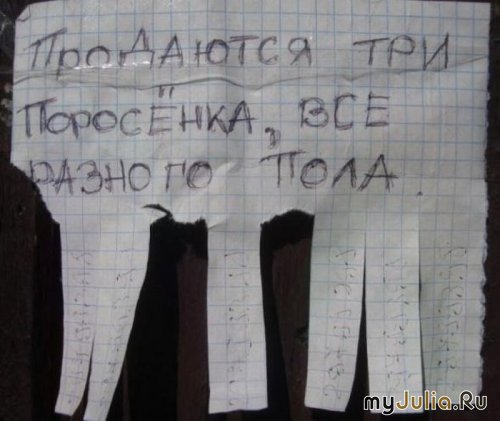 ПРОДАЮТСЯ ТРИ
ПОРОСЁНКА, ВСЕ
РАЗНОГО ПОЛА.
myJulia.Ru